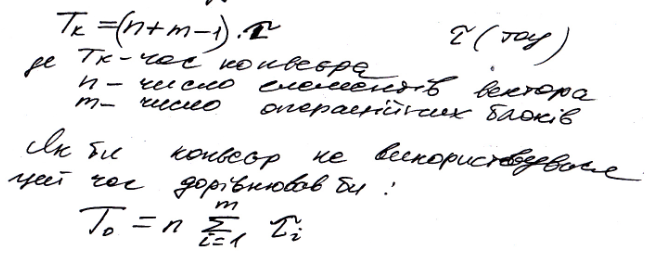 Tк = (n + m – 1) · τ     τ (тау)
де Tк - час конвеєра
n – число елементів вектора
m – число операційних блоків
Як би конвеєр не використовувався
цей час дорівнював би :
T₀ = n ∑ᵢ₌₁ᵐ τᵢ